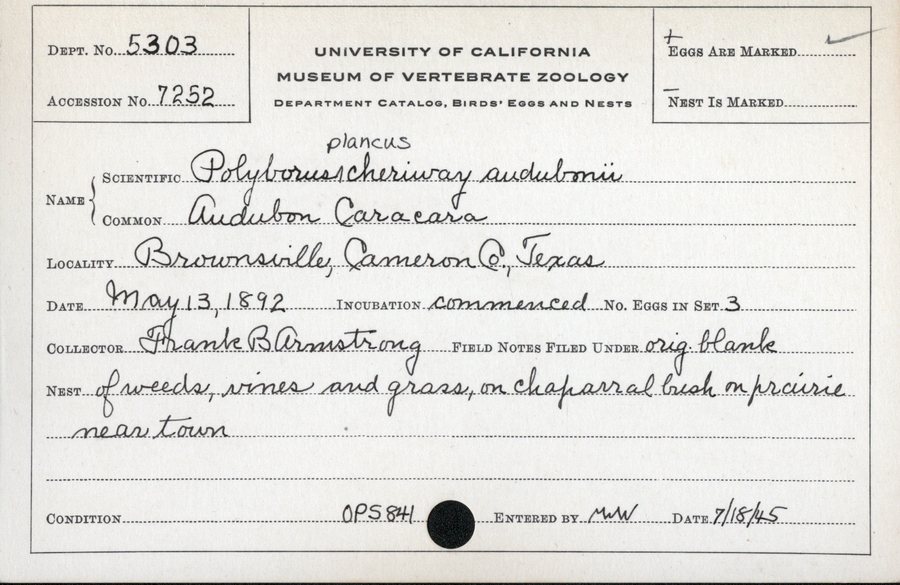 DEPT. No. 5303
ACCESSION No. 7252
UNIVERSITY OF CALIFORNIA
MUSEUM OF VERTEBRATE ZOOLOGY
DEPARTMENT CATALOG, BIRDS' EGGS AND NESTS
+ EGGS ARE MARKED ✓
– NEST IS MARKED
plancus
NAME { SCIENTIFIC Polyborus cheriway audubonii
COMMON Audubon Caracara
LOCALITY Brownsville, Cameron Co., Texas
DATE May 13, 1892 INCUBATION commenced No. EGGS IN SET 3
COLLECTOR Frank B Armstrong FIELD NOTES FILED UNDER orig. blank
NEST of weeds, vines and grass, on chaparral bush on prairie
near town
CONDITION OPS 841 ENTERED BY MVW DATE 7/18/45